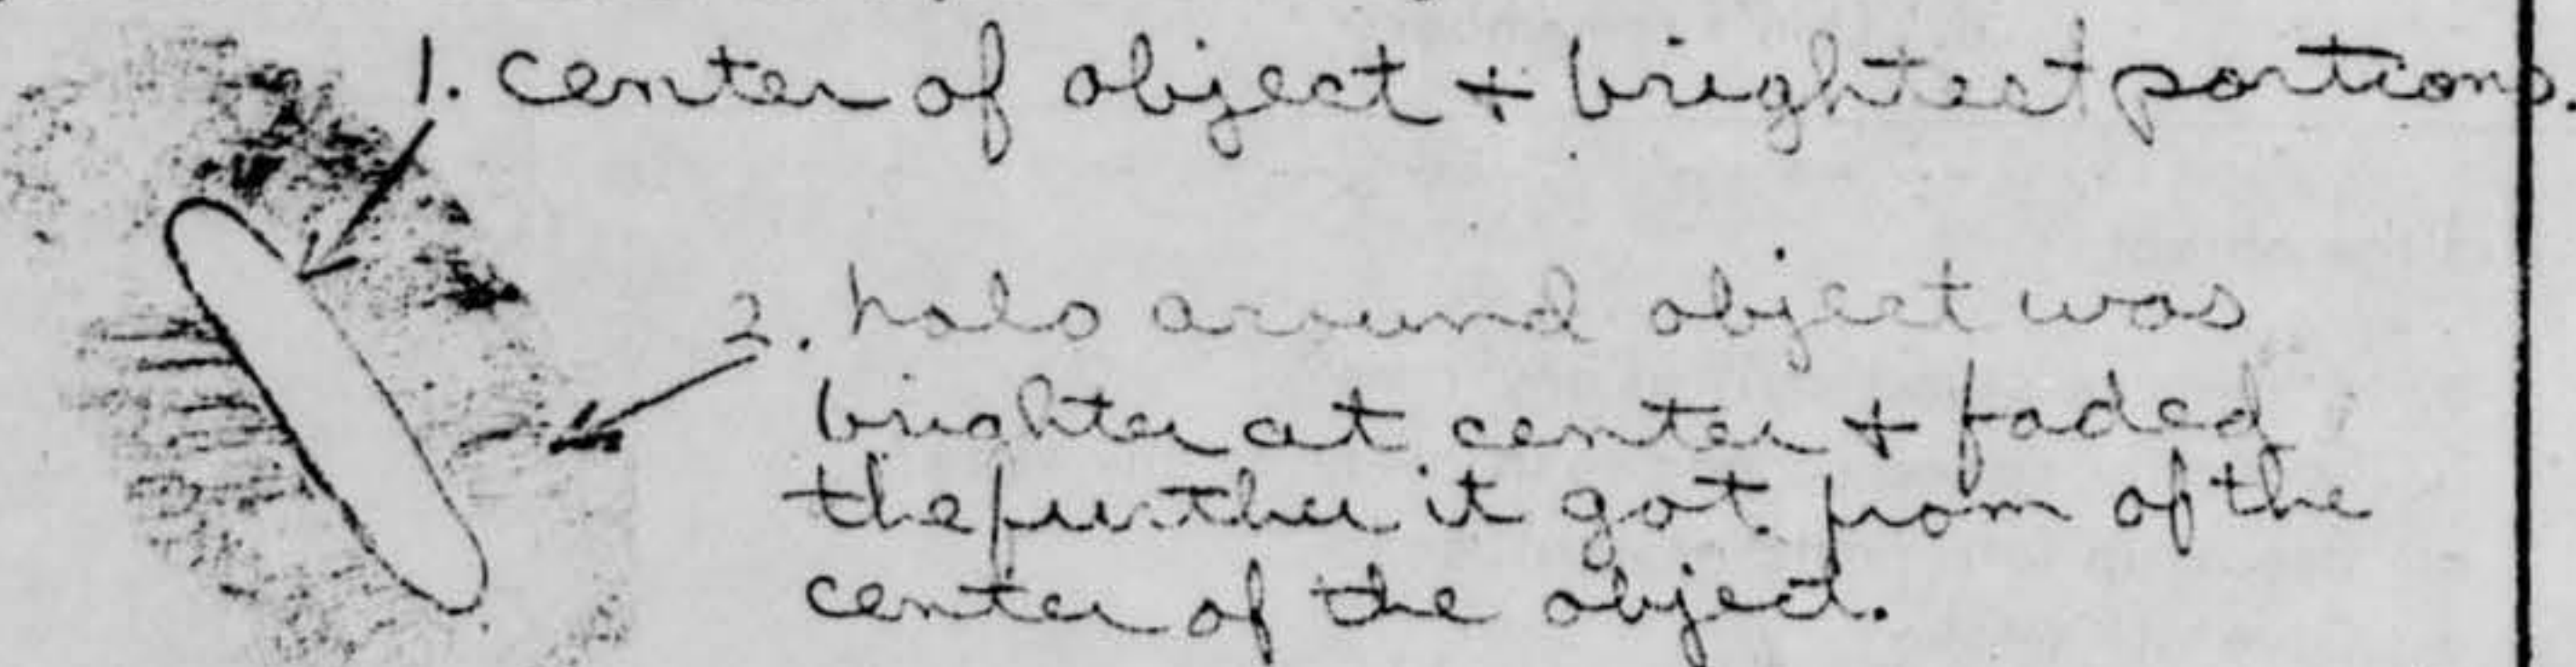 1. center of object + brightest portions.
2. halo around object was
brighter at center + faded
the further it got from of the
center of the object.